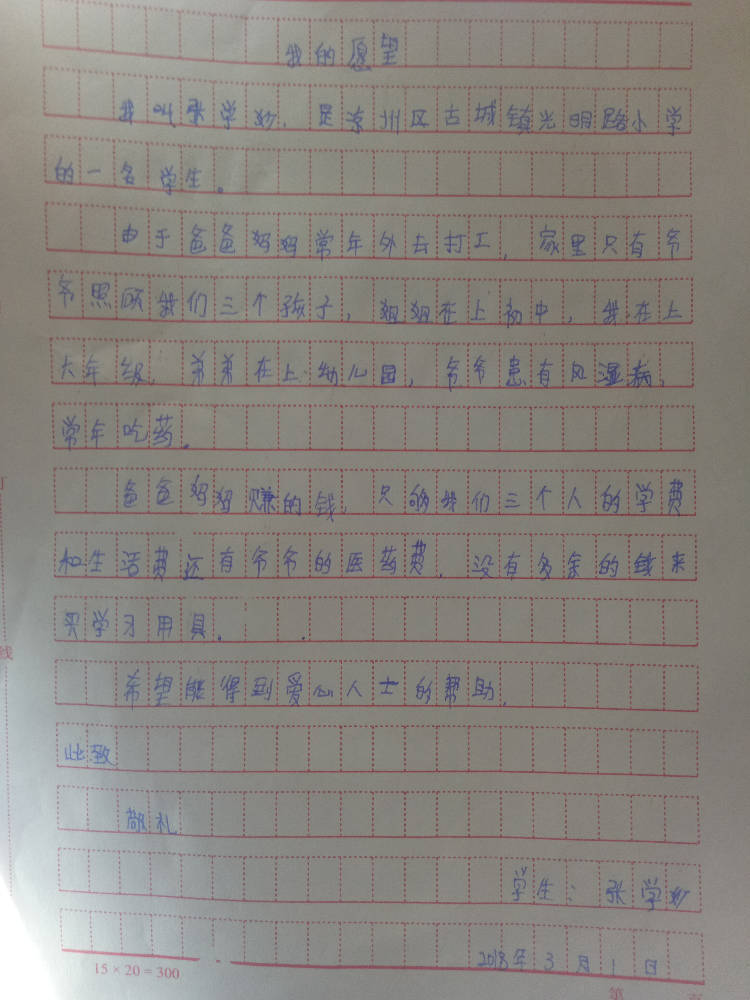 我的愿望
我叫张学妙，是凉州区古城镇光明路小学
的一名学生。
由于爸爸妈妈常年外去打工，家里只有爷
爷照顾我们三个孩子，姐姐在上初中，我在上
六年级，弟弟在上幼儿园，爷爷患有风湿病，
常年吃药。
爸爸妈妈赚的钱，只够我们三个人的学费
和生活费还有爷爷的医药费，没有多余的钱来
买学习用具。
希望能得到爱心人士的帮助。
此致
敬礼
学生：张学妙
2018年3月1日
15×20=300
第
线